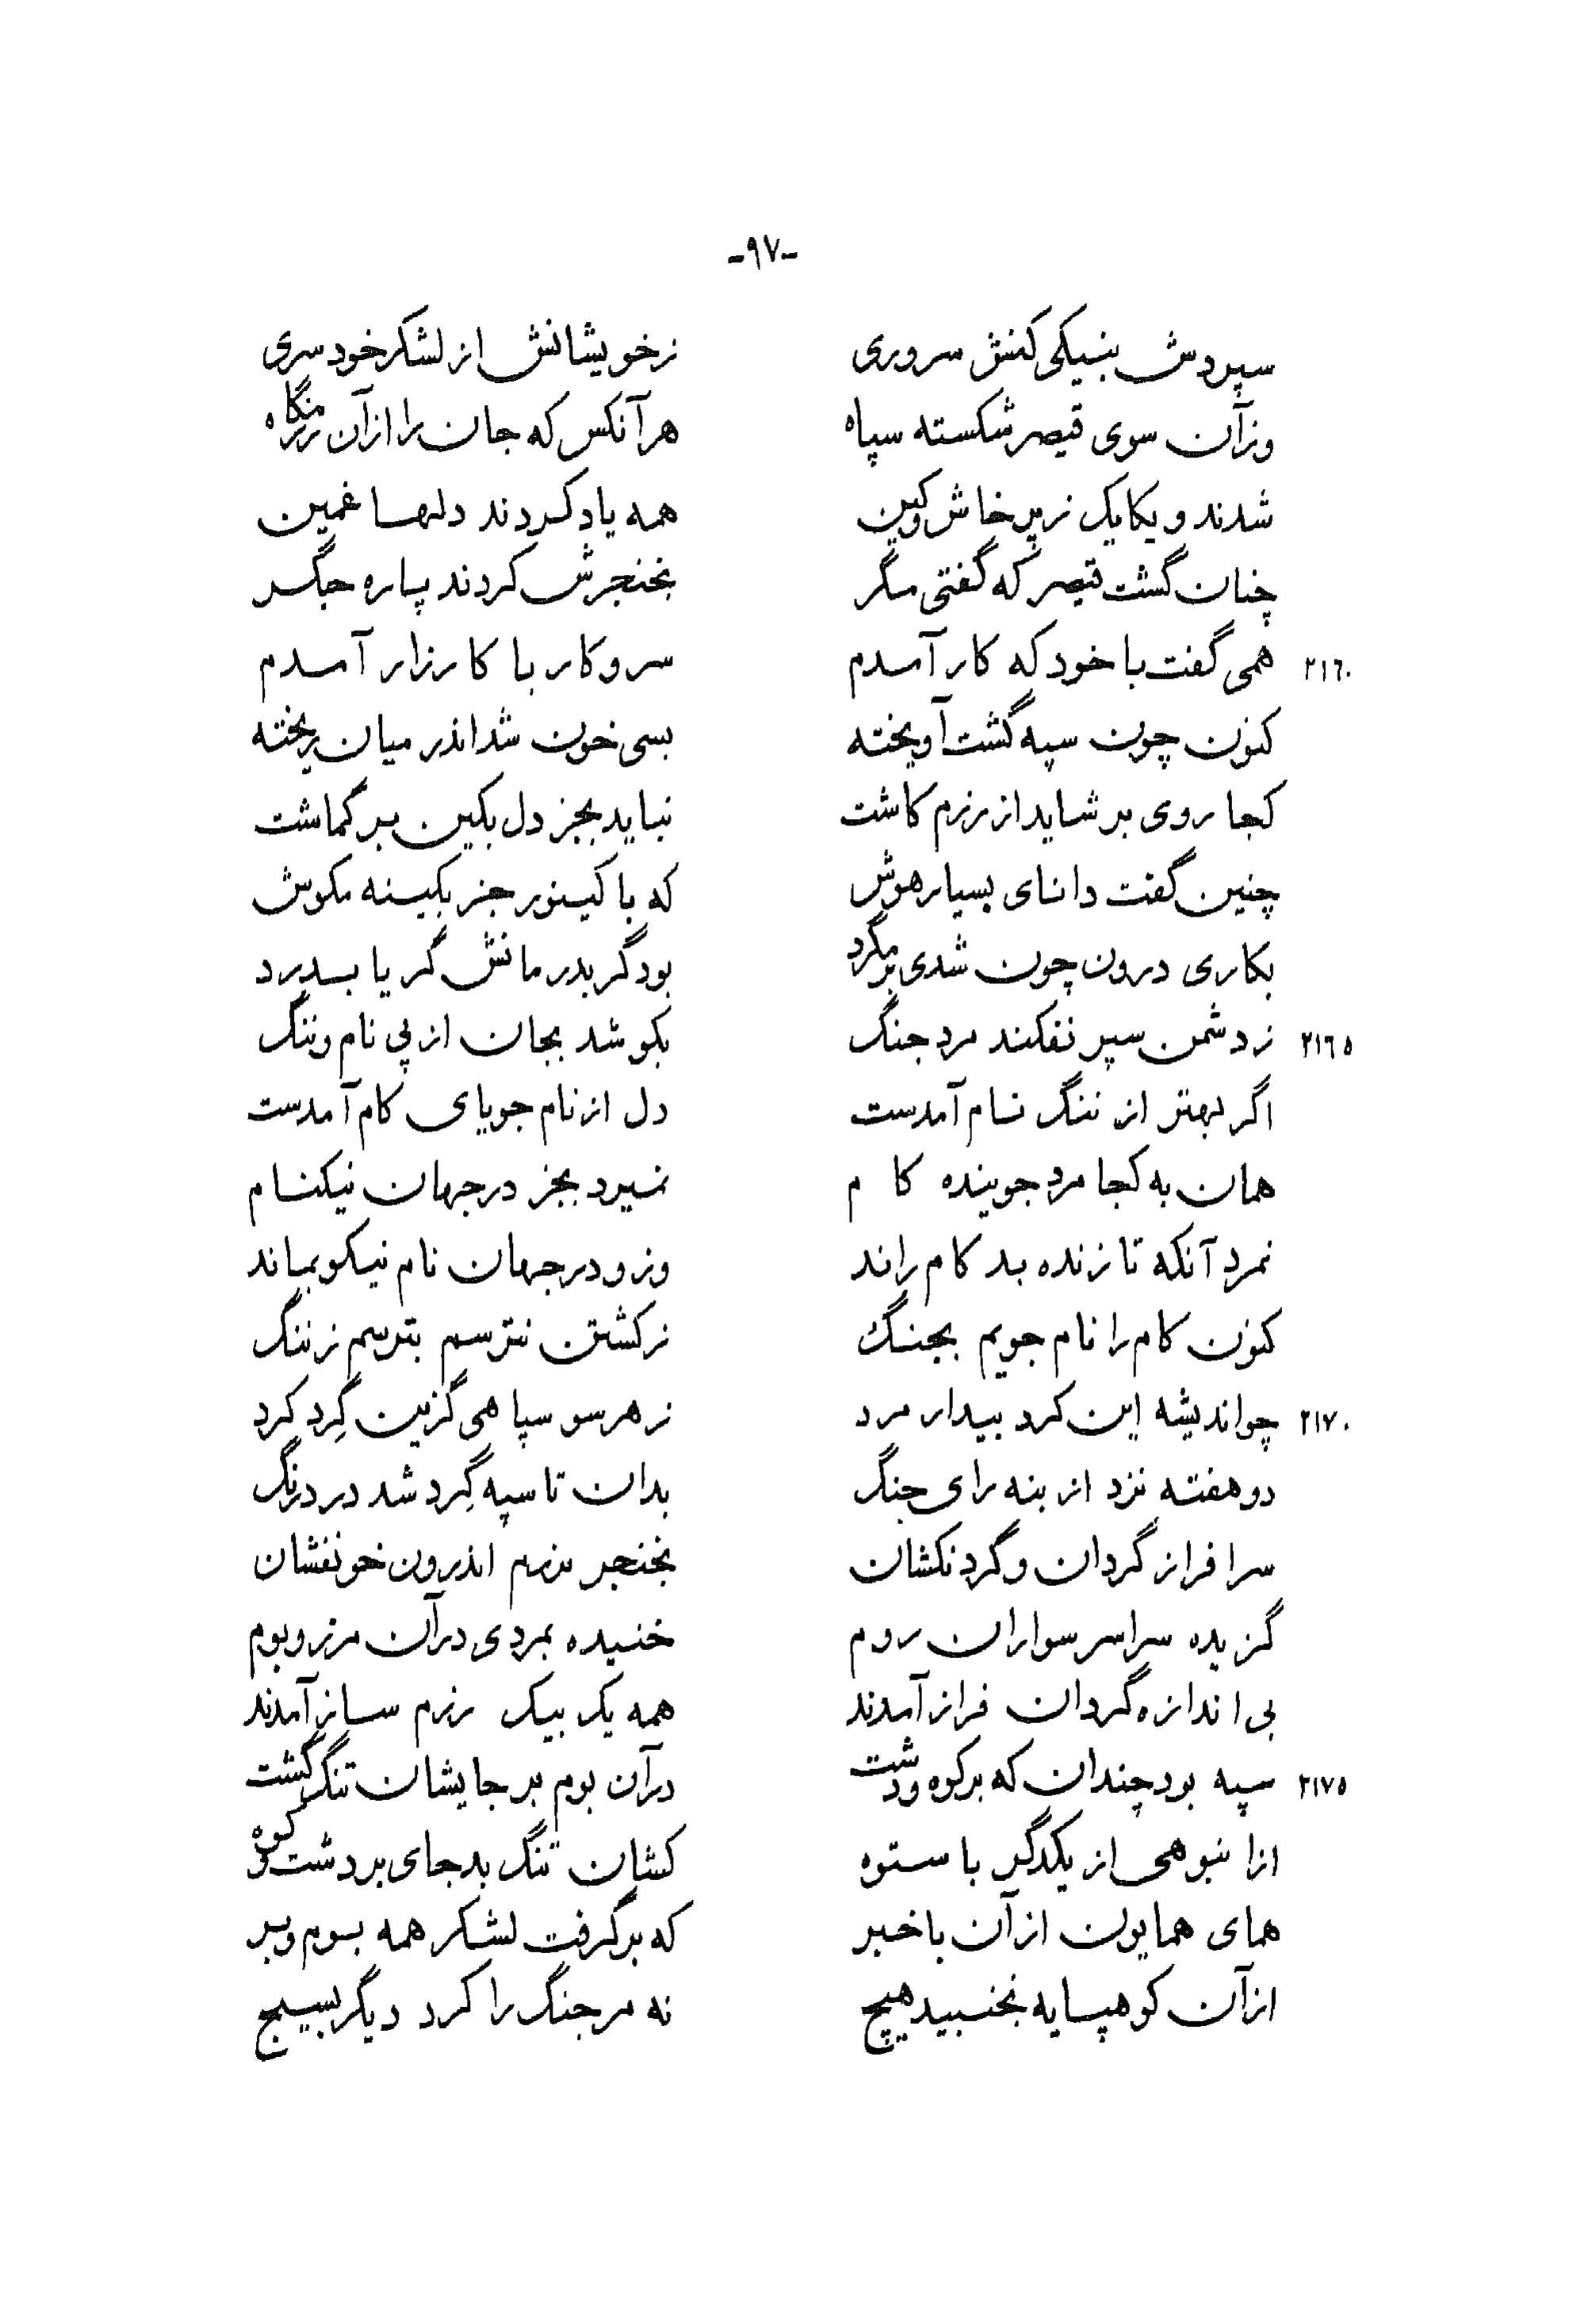 -۹۷-
سپردش بنیکی کنش سروری زخویشانش از لشکر خود سری
وزآن سوی قیصر شکسته سپاه هرآنکس که جان را ازآن رزمگاه
شدند و یکایک ز پرخاش وکین همه یاد کردند دلها غمین
چنان گشت قیصر که گفتی مگر بخنجرش کردند پاره جگر
۲۱٦۰ همی گفت با خود که کار آمدم سر و کار با کارزار آمدم
کنون چون سپه گشت آویخته بسی خون شد اندر میان ریخته
کجا روی بر شاید از رزم کاشت نباید بجز دل بکین بر گماشت
چنین گفت دانای بسیار هوش که با کینور جز بکینه مکوش
بکاری درون چون شدی برمگرد بود گر بدرمانش گر یا بدرد
۲۱٦٥ ز دشمن سپر نفکند مرد جنگ بکوشد بجان از پی نام و ننگ
اگر بهتر از ننگ نام آمدست دل از نام جویای کام آمدست
همان به کجا مرد جوینده کام نمیرد بجز در جهان نیکنام
نمرد آنکه تا زنده بد کام راند وزو در جهان نام نیکو بماند
کنون کام را نام جویم بجنگ ز کشتن نترسم بترسم ز ننگ
۲۱۷۰ چو اندیشه این کرد بیدار مرد ز هر سو سپاهی گزین گِرد کرد
دو هفته نزد از بنه رای جنگ بدان تا سپه گِرد شد در درنگ
سرافراز گردان و گردنکشان بخنجر بزهم اندرون خونفشان
گزیده سراسر سواران روم خنیده بمردی درآن مرز و بوم
بی اندازه گردان فراز آمدند همه یک بیک رزم ساز آمدند
۲۱۷٥ سپه بود چندان که بر کوه و دشت درآن بوم بر جایشان تنگ گشت
از انبوهی از یکدگر با ستوه کشان تنگ بد جای بر دشت و کوه
همای همایون ازآن با خبر که بر گرفت لشکر همه بوم و بر
ازآن کوهپایه نجنبید هیچ نه مر جنگ را کرد دیگر بسیج